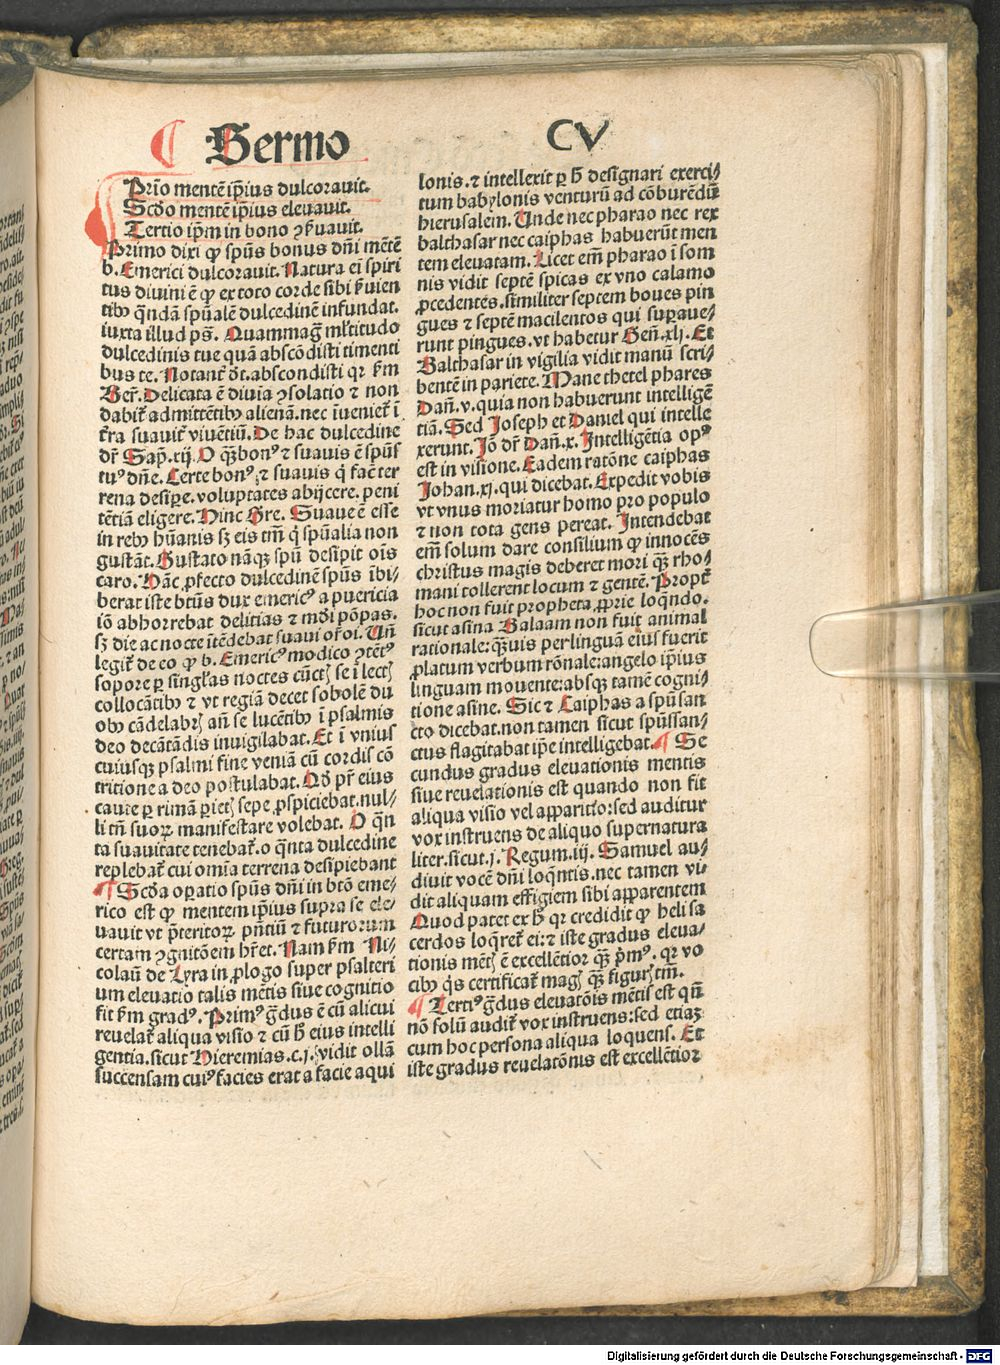 Sermo CV
Prio mentē ip̄ius dulcorauit.
Scdo mentē ip̄ius eleuauit.
Tertio ip̄m in bono ꝯẜuauit.
Primo dixi ꝙ spūs bonus dn̄i mētē
b. Emerici dulcorauit. Natura em̄ spiri
tus diuini ē ꝙ ex toto corde sibi ẜuien
tibꝰ quādā spūalē dulcedinē infundat.
iuxta illud ps̄. Quammagna ml̄titudo
dulcedinis tue quā abscōdisti timenti
bus te. Notant̄ dt. abscondisti qꝛ ẜm
Ber̄. Delicata ē diuīa ꝯsolatio ⁊ non
dabit̄ admittētibꝰ alienā. nec īueniet̄ ī
tr̄a suauit̄ viuētiū. De hac dulcedine
dr̄ Sap̄. xij. O qꝫ bonꝰ ⁊ suauis ē spūs
tuꝰ dn̄e. Certe bonꝰ ⁊ suauis q̄ facit ter
rena desipe. voluptates abijcere. peni
tētiā eligere. Hinc Gre. Suaue ē esse
in rebꝰ hūanis sꝫ eis tm̄ q̄ spūalia non
gustāt. Gustato nāqꝫ spū desipit oīs
caro. Hāc ꝓfecto dulcedinē spūs ībi-
berat iste btūs dux emericꝰ a puericia
iō abhorrebat delitias ⁊ mūdi pōpas.
sꝫ die ac nocte ītēdebat suaui or̄oi. Un̄
legit̄ de eo ꝙ b. Emericꝰ modico ꝯtētꝰ
sopore ꝑ singl̄as noctes cūctꝭ se ī lectꝭ
collocātibꝰ ⁊ vt regiā decet sobolē du
obꝰ cādelabrꝭ añ se lucētibꝰ ī psalmis
deo decātādis inuigilabat. Et ī vniꝰ
cuiusqꝫ psalmi fine veniā cū cordis cō
tritione a deo postulabat. Qd̄ pr̄ eius
caute ꝑ rimā ꝑietꝭ sepe ꝓspiciebat. nul-
li tn̄ suoꝝ manifestare volebat. O qn̄
ta suauitate tenebat̄. o qn̄ta dulcedine
replebat̄ cui omīa terrena desipiebant
¶ Scd̄a oꝑatio spūs dn̄i in btō eme-
rico est ꝙ mentem ip̄ius supra se ele-
uauit vt p̄teritoꝝ pn̄tiū ⁊ futurorum
certam ꝯgnitōem hr̄et. Nam ẜm Ni-
colaū de Lyra in ꝓlogo super psalteri
um eleuatio talis mētis siue cognitio
fit ẜm gradꝰ. Primꝰ gdus ē cū alicui
reuelat̄ aliqua visio ⁊ cū h̄ eius intelli
gentia. sicut Hieremias. c. j. vidit ollā
succensam cuiꝰ facies erat a facie aqui
lonis. ⁊ intellexit ꝑ h̄ designari exerci-
tum babylonis venturū ad cōburēdū
hierusalem. Unde nec pharao nec rex
balthasar nec caiphas habuerūt men
tem eleuatam. Licet em̄ pharao ī som
nis vidit septē spicas ex vno calamo
ꝓcedentes. sīmiliter septem boues pin
gues ⁊ septē macilentos qui suꝑaue-
runt pingues. vt habetur Gen̄. xlj. Et
Balthasar in vigilia vidit manū scri-
bentē in pariete. Mane thetel phares
Dan̄. v. quia non habuerunt intelligē
tiā. Sed Joseph et Daniel qui intelle
xerunt. Jō dr̄ Dan̄. x. Intelligētia opꝰ
est in visione. Eadem ratōne caiphas
Johan. xj. qui dicebat. Expedit vobis
vt vnus moriatur homo pro populo
⁊ non tota gens pereat. Intendebat
em̄ solum dare consilium ꝙ innocēs
christus magis deberet mori qꝫ rho-
mani tollerent locum ⁊ gentē. Propt̄
hoc non fuit propheta. ꝓprie loqn̄do.
sicut asina Balaam non fuit animal
rationale: qꝫuis per linguā eius fuerit
ꝓlatum verbum rōnale: angelo ip̄ius
linguam mouente: absqꝫ tamē cogni-
tione asine. Sic ⁊ Caiphas a spū san
cto dicebat. non tamen sicut spūssan-
ctus flagitabat ip̄e intelligebat. ¶ Se
cundus gradus eleuationis mentis
siue reuelationis est quando non fit
aliqua visio vel apparitio: sed auditur
vox instruens de aliquo supernatura
liter. sicut. j. Regum. iij. Samuel au-
diuit vocē dn̄i loqn̄tis. nec tamen vi
dit aliquam effigiem sibi apparentem
Quod patet ex h̄ qꝛ credidit ꝙ heli sa
cerdos loqret̄ ei: ⁊ iste gradus eleua-
tionis mētꝭ ē excellētior qꝫ pͥmꝰ. qꝛ vo
cibꝰ q̄s certificat̄ magꝭ qꝫ figurꝭ tm̄.
¶ Tertiꝰ gdus eleuatōis mētis est qn̄
nō solū audit̄ vox instruens: sed etiaꝫ
cum hoc persona aliqua loquens. Et
iste gradus reuelatōnis est excellētior
Digitalisierung gefördert durch die Deutsche Forschungsgemeinschaft - DFG